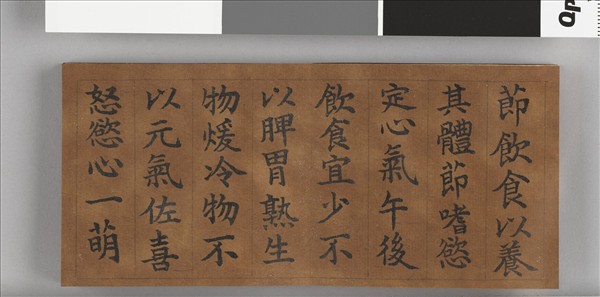 節飲食以養
其體節嗜慾
定心氣午後
飲食宜少不
以脾胃熟生
物煖冷物不
以元氣佐喜
怒慾心一萌